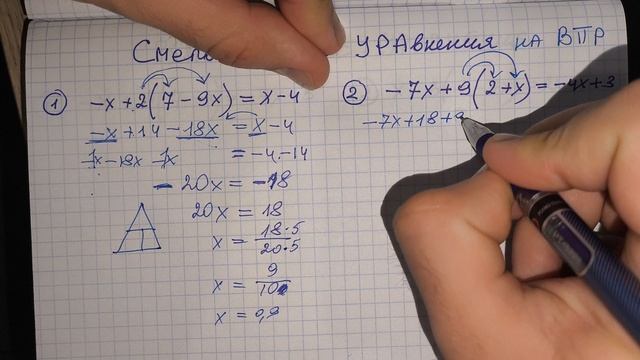 УРАвнения на ВПР
1
-x+2(7-9x)=x-4
-x+14-18x=x-4
-1x-18x-1x =-4-14
-20x=-18
20x=18
x=18·5/20·5
x=9/10
x=0,9
2
-7x+9(2+x)=-4x+3
-7x+18+9